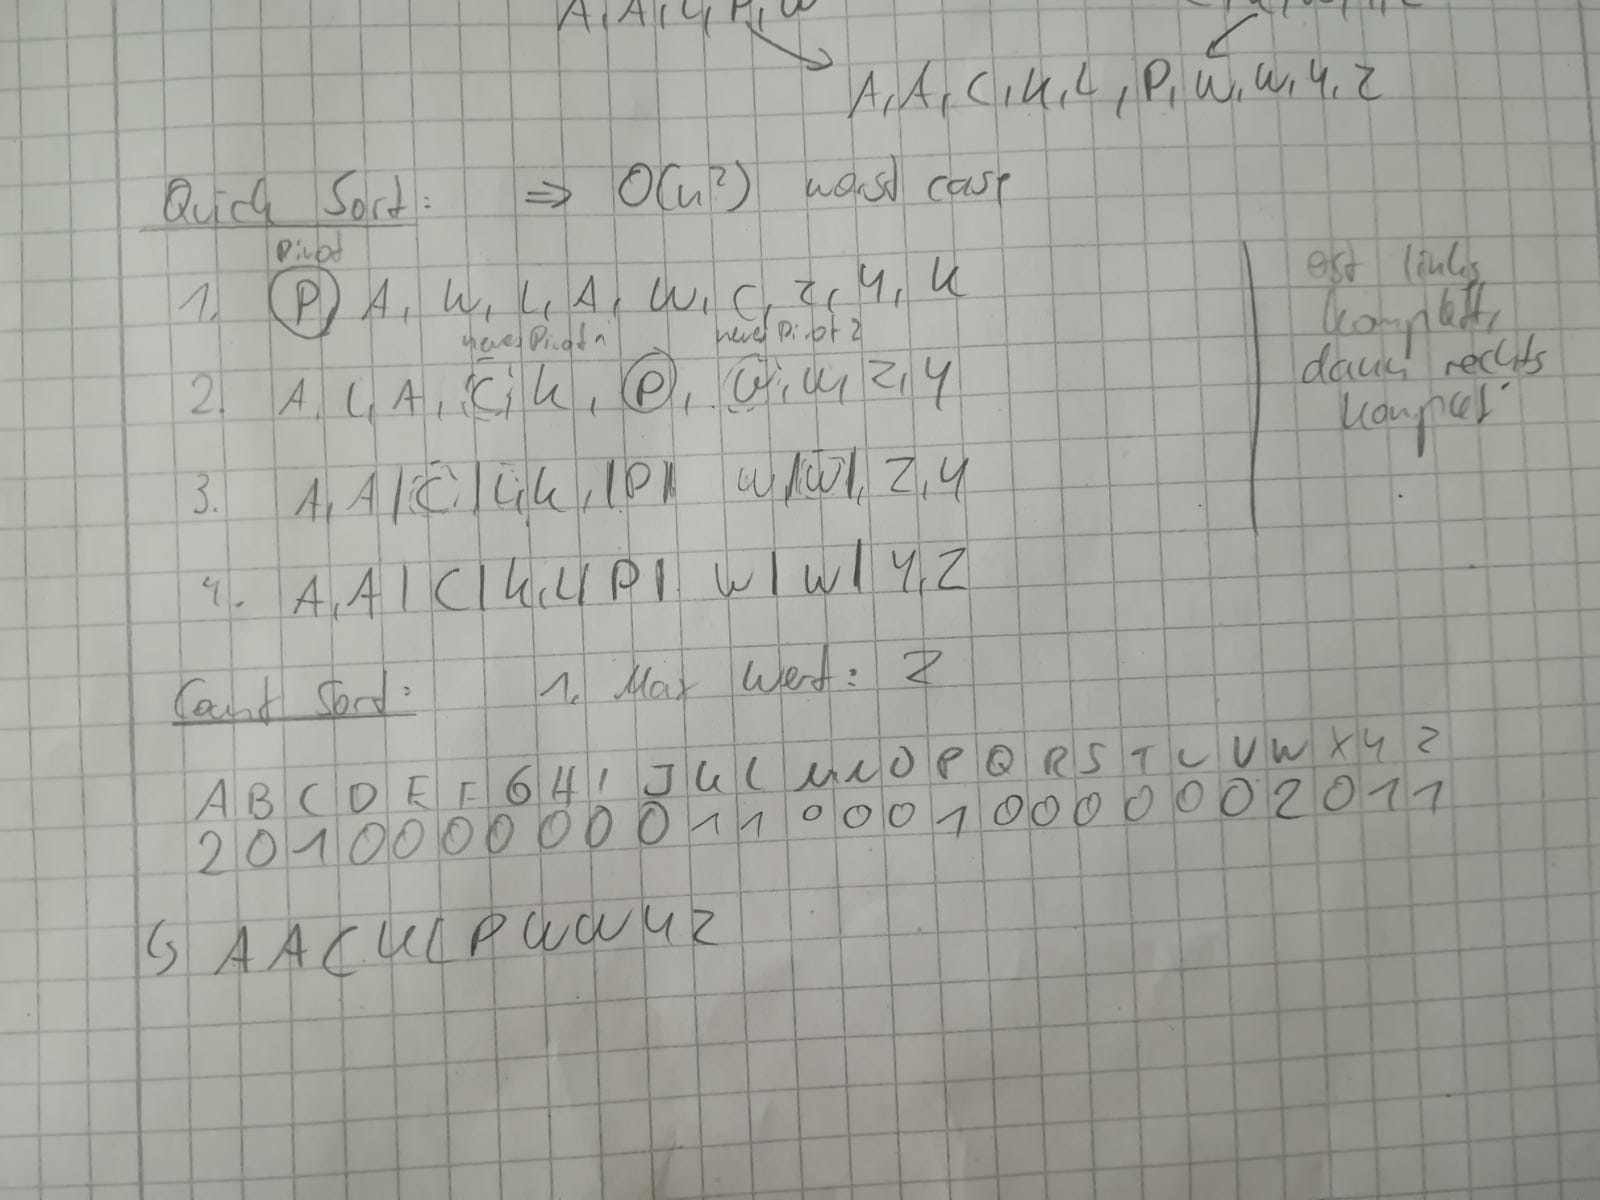 A, A, L, P, W
A, A, C, K, L, P, W, W, Y, Z
Quick Sort: ⇒ O(n²) worst case
Pivot
1. P A, W, L, A, W, C, Z, Y, K
neues Pivot 1 neues Pivot 2
2. A, L, A, C, K, P, W, W, Z, Y
3. A, A | C | L, K, | P | W | W |, Z, Y
4. A, A | C | K, L | P | W | W | Y, Z
erst links
komplett,
dann rechts
komplett
Count Sort: 1. Max Wert: Z
A B C D E F G H I J K L M N O P Q R S T U V W X Y Z
2 0 1 0 0 0 0 0 0 0 1 1 0 0 0 1 0 0 0 0 0 0 2 0 1 1
↳ A A C K L P W W Y Z